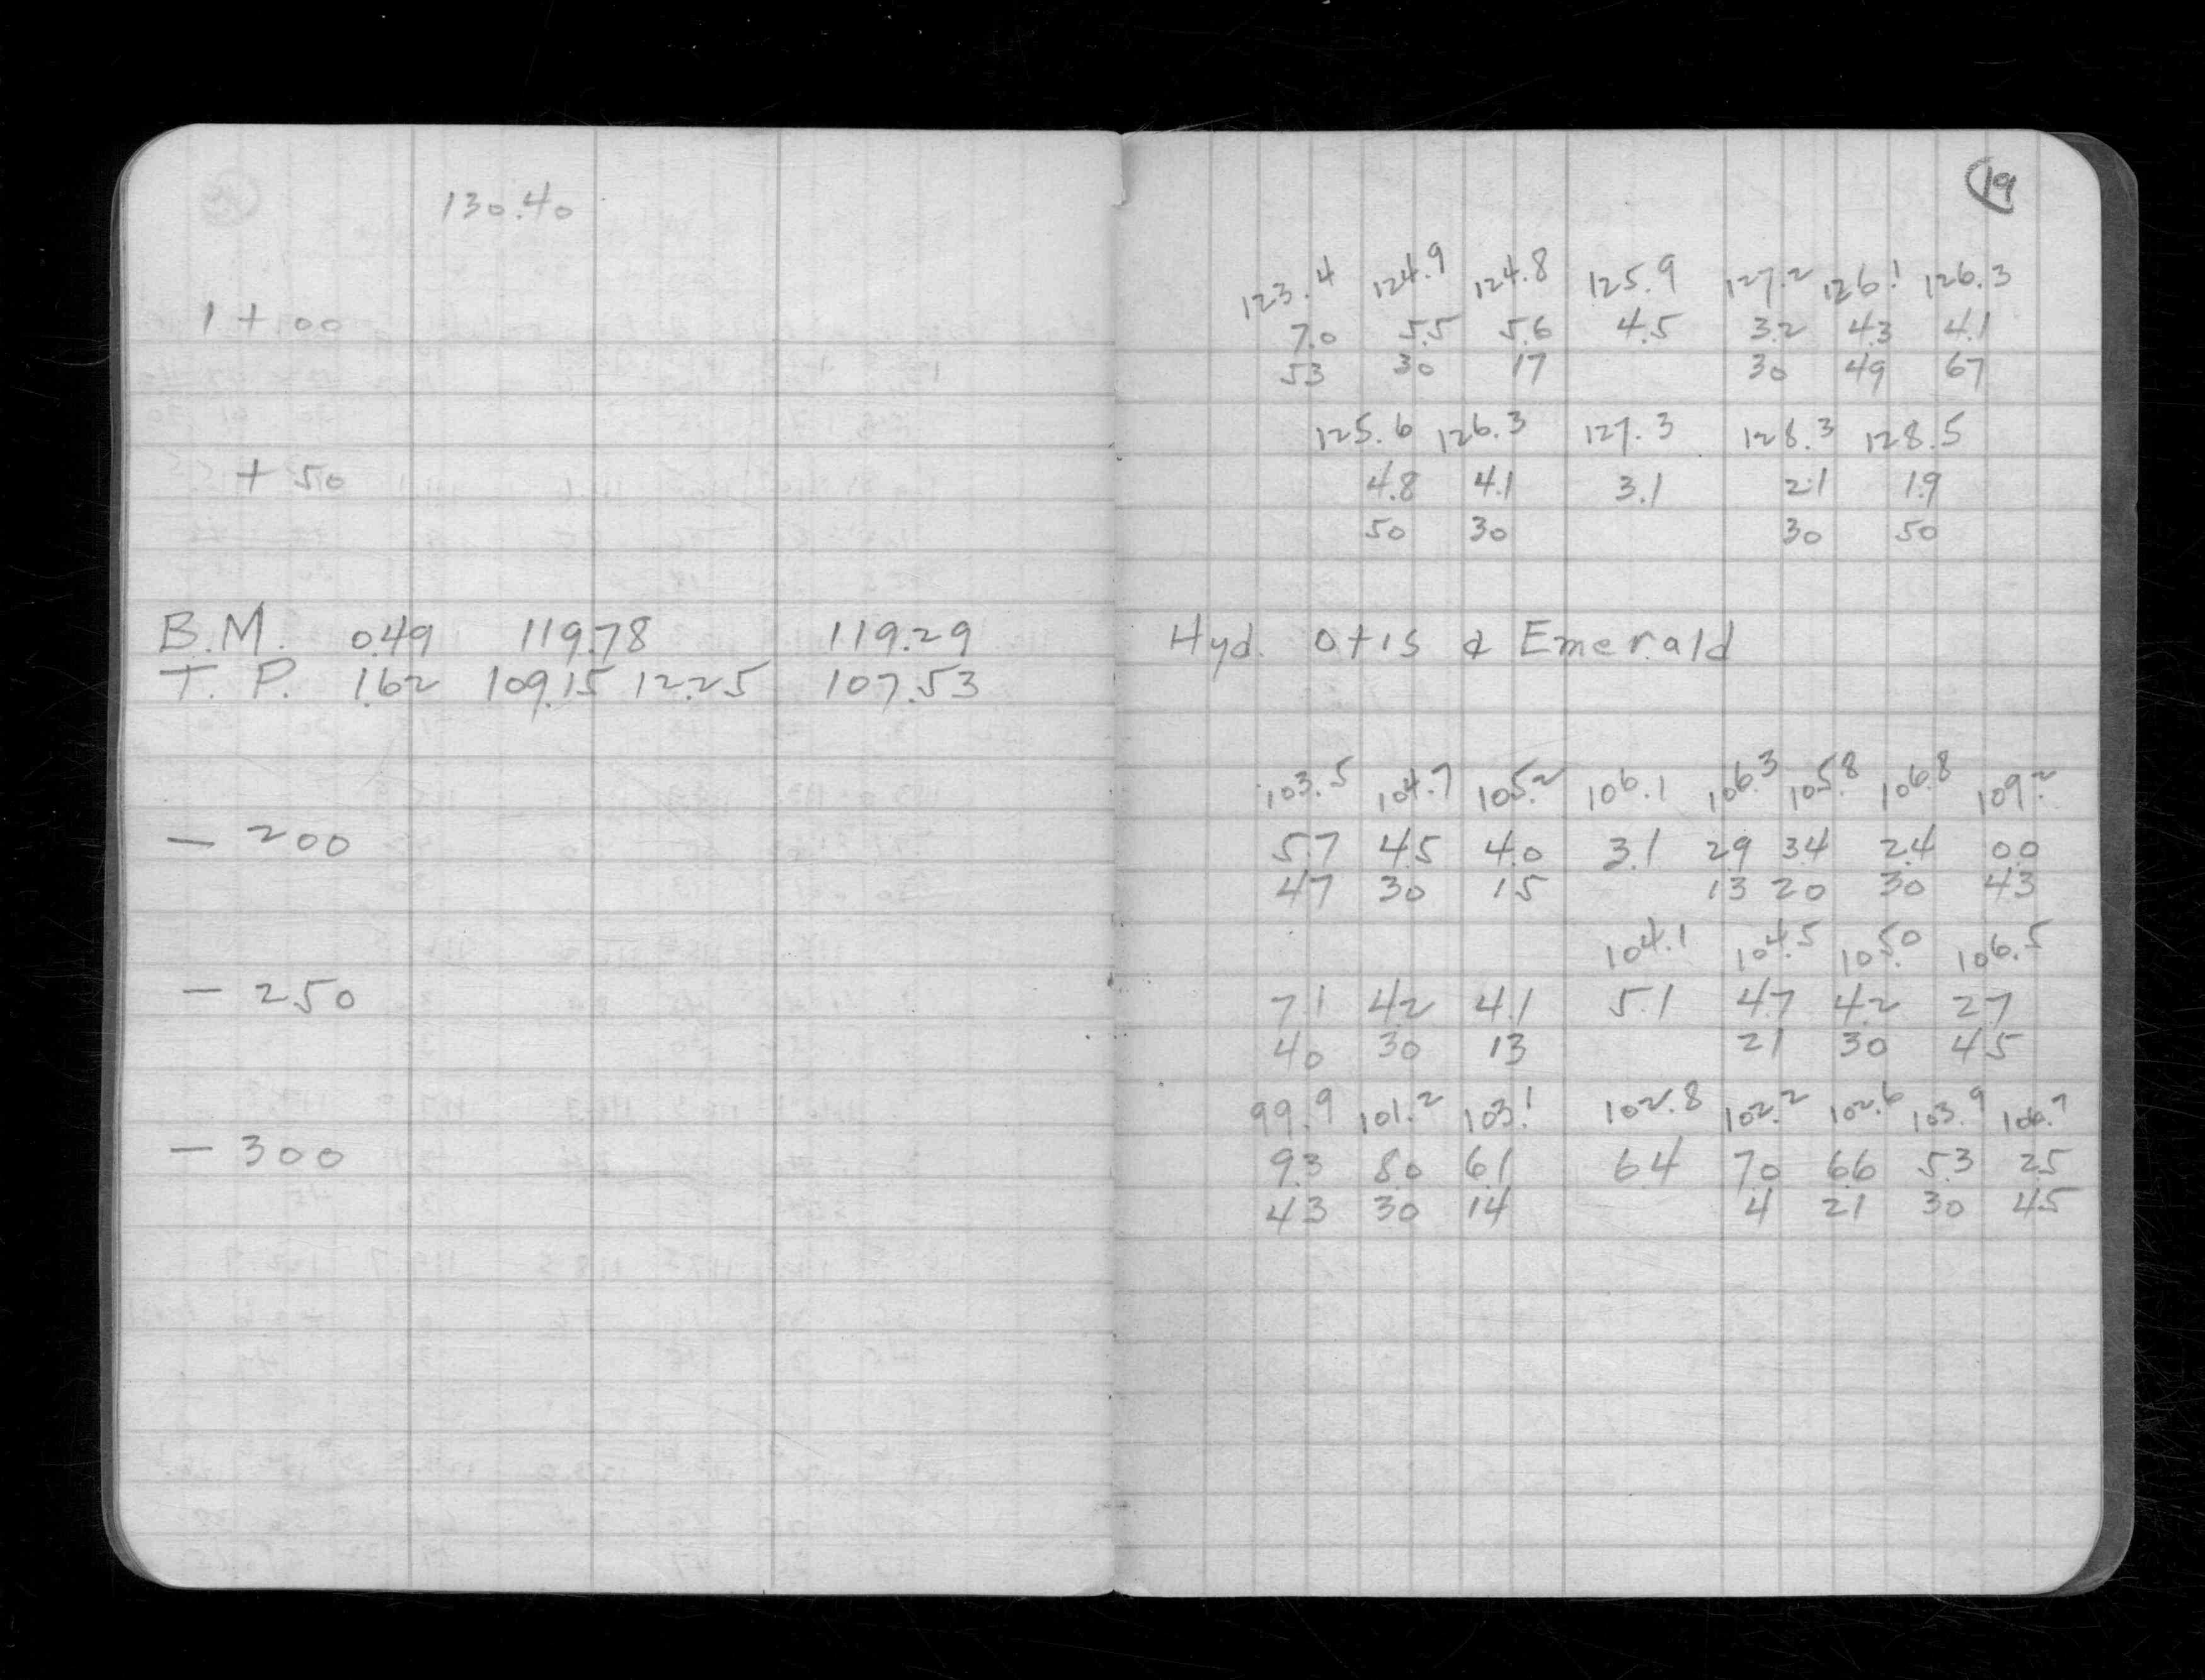 130.40
19
123.4 124.9 124.8 125.9 127.2 126.1 126.3
1 + 00 7.0 5.5 5.6 4.5 3.2 4.3 4.1
53 30 17 30 49 67
125.6 126.3 127.3 128.3 128.5
+ 50 4.8 4.1 3.1 2.1 1.9
50 30 30 50
B.M. 0.49 119.78 119.29 Hyd. Otis & Emerald
T. P. 1.62 109.15 12.25 107.53
103.5 104.7 105.2 106.1 106.3 105.8 106.8 109.2
- 200 5.7 4.5 4.0 3.1 2.9 3.4 2.4 0.0
47 30 15 13 20 30 43
104.1 104.5 105.0 106.5
- 250 7.1 4.2 4.1 5.1 4.7 4.2 2.7
40 30 13 21 30 45
99.9 101.2 103.1 102.8 102.2 102.6 103.9 106.7
- 300 9.3 8.0 6.1 6.4 7.0 6.6 5.3 2.5
43 30 14 4 21 30 45